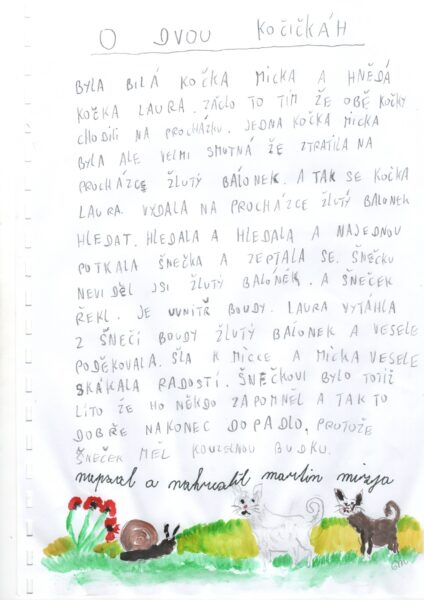 O DVOU KOČIČKÁH
BYLA BILÁ KOČKA MICKA A HNĚDÁ
KOČKA LAURA. ZAČLO TO TÍM ŽE OBĚ KOČKY
CHODILI NA PROCHÁZKU. JEDNA KOČKA MICKA
BYLA ALE VELMI SMUTNÁ ŽE ZTRATILA NA
PROCHÁZCE ŽLUTÝ BALONEK. A TAK SE KOČKA
LAURA. VYDALA NA PROCHÁZCE ŽLUTÝ BALONEK
HLEDAT. HLEDALA A HLEDALA A NAJEDNOU
POTKALA ŠNEČKA A ZEPTALA SE. ŠNEČKU
NEVIDĚL JSI ŽLUTÝ BALÓNEK. A ŠNEČEK
ŘEKL. JE UVNITŘ BOUDY. LAURA VYTÁHLA
Z ŠNEČÍ BOUDY ŽLUTÝ BALONEK A VESELE
PODĚKOVALA. ŠLA K MICCE A MIČKA VESELE
SKÁKALA RADOSTÍ. ŠNEČKOVI BYLO TOTIŽ
LÍTO ŽE HO NĚKDO ZAPOMNEL A TAK TO
DOBŘE NAKONEC DOPADLO, PROTOŽE
ŠNEČEK MĚL KOUZELNOU BUDKU.
napsal a nakreslil martin